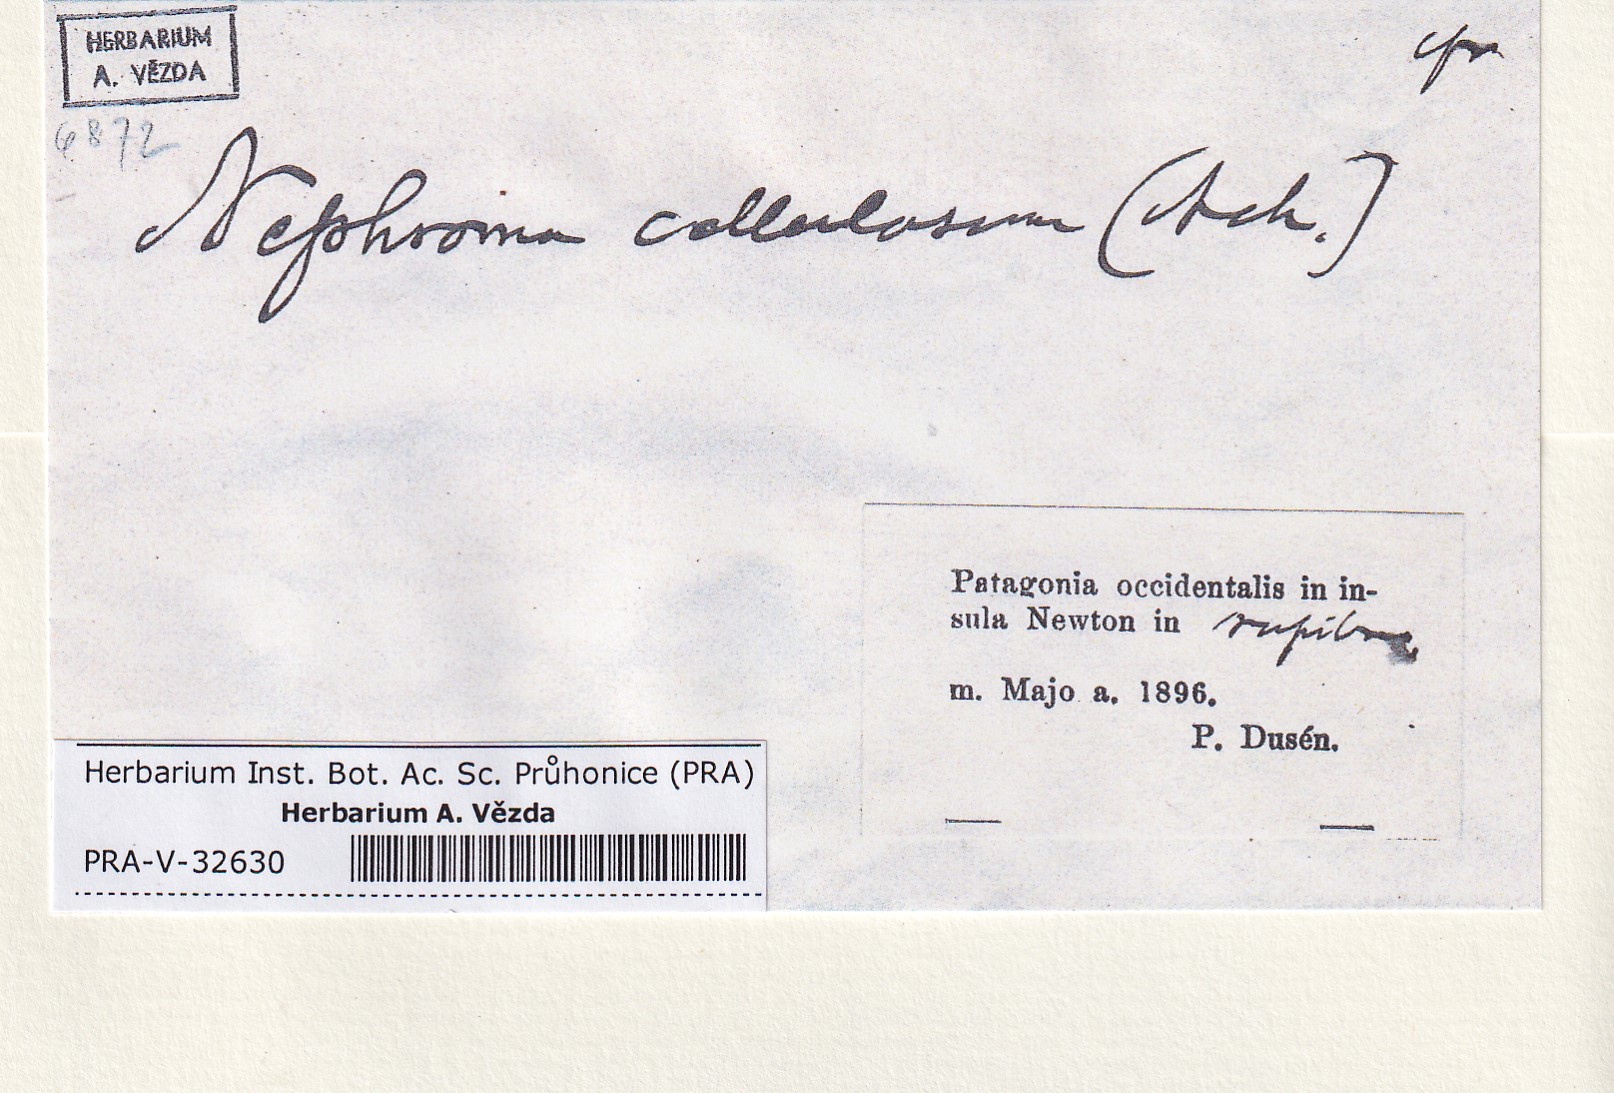 HERBARIUM
A. VĚZDA
6872
Nephroma cellulosum (Ach.)
Patagonia occidentalis in in-
sula Newton in rupibus
m. Majo a. 1896.
P. Dusén.
Herbarium Inst. Bot. Ac. Sc. Průhonice (PRA)
Herbarium A. Vězda
PRA-V-32630